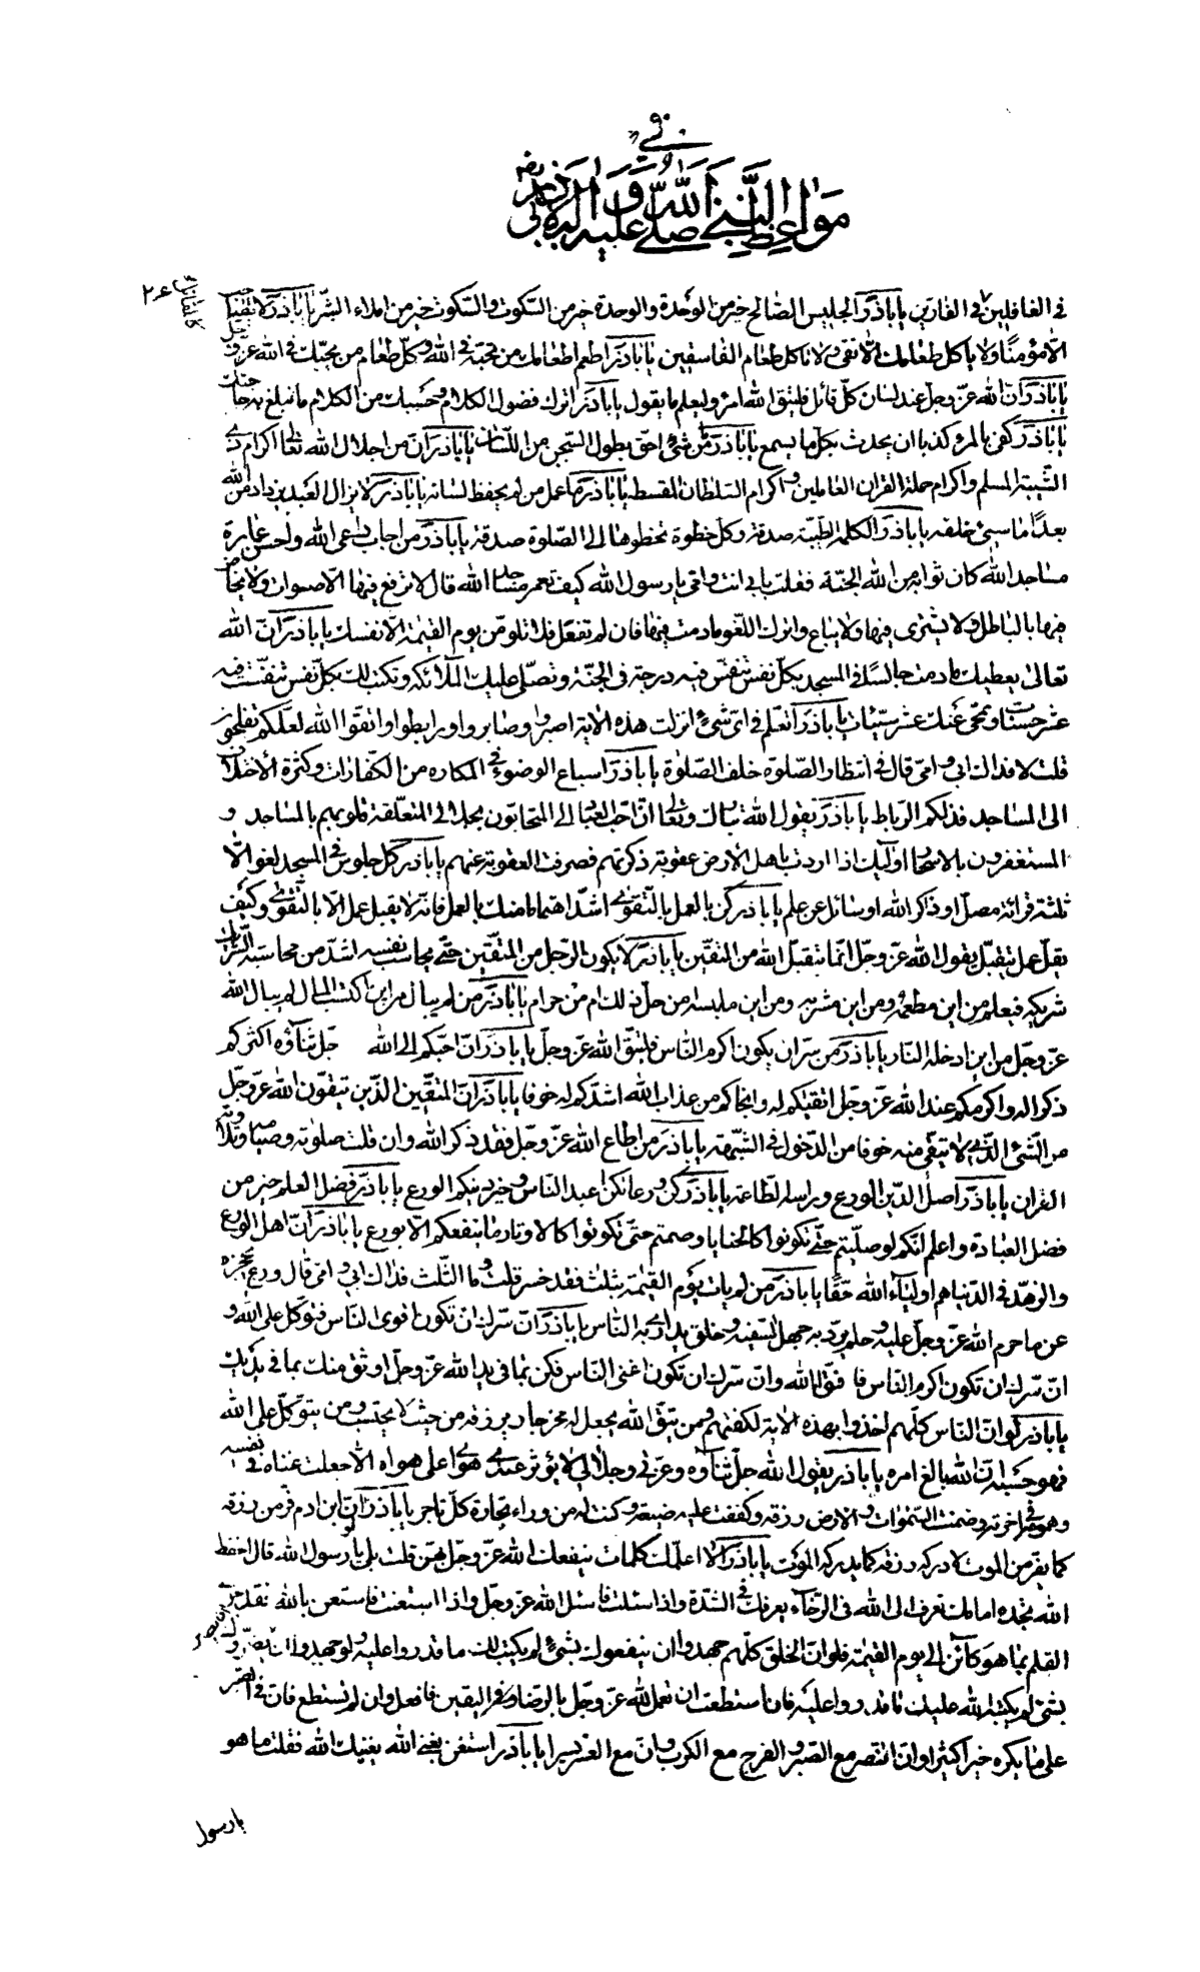 في
مواعظ النبي صلى الله عليه وآله لابي ذر رضه
٢٤
في الغافلين في الفارين يا باذر الجليس الصالح خير من الوحدة والوحدة خير من السكوت والسكوت خير من املاء الشر يا باذر لا تصاحب
الا مؤمنا ولا ياكل طعامك الا تقي ولا تاكل طعام الفاسقين يا باذر اطعم طعامك من تحبه في الله وكل طعام من يحبك في الله عز وجل
يا باذر ان الله عز وجل عند لسان كل قائل فليتق الله امرؤ وليعلم ما يقول يا باذر اترك فضول الكلام وحسبك من الكلام ما تبلغ به حاجتك
يا باذر كفى بالمرء كذبا ان يحدث بكل ما يسمع يا باذر ما من شيء احق بطول السجن من اللسان يا باذر ان من اجلال الله تعالى اكرام ذي
الشيبة المسلم واكرام حملة القران العاملين واكرام السلطان المقسط يا باذر ما عمل من لم يحفظ لسانه يا باذر لا يزال العبد يزداد من الله
بعدا ما سيئ خلقه يا باذر الكلمة الطيبة صدقة وكل خطوة تخطوها الى الصلوة صدقة يا باذر من اجاب داعي الله واحسن عمارة
مساجد الله كان ثوابه من الله الجنة فقلت بابي انت وامي يا رسول الله كيف تعمر مساجد الله قال لا ترفع فيها الاصوات ولا يخاض
فيها بالباطل ولا يشترى فيها ولا يباع واترك اللغو ما دمت فيها فان لم تفعل فلا تلومن يوم القيمة الا نفسك يا باذر ان الله
تعالى يعطيك ما دمت جالسا في المسجد بكل نفس تنفس فيه درجة في الجنة وتصلى عليك الملائكة وتكتب لك بكل نفس تنفست فيه
عشر حسنات وتمحى عنك عشر سيئات يا باذر اتعلم في اي شيء انزلت هذه الاية اصبروا وصابروا ورابطوا واتقوا الله لعلكم تفلحون
قلت لا فداك ابي وامي قال في انتظار الصلوة خلف الصلوة يا باذر اسباغ الوضوء في المكاره من الكفارات وكثرة الاختلاف
الى المساجد فذلكم الرباط يا باذر يقول الله تبارك وتعالى ان احب العباد الي المتحابون بجلالي المتعلقة قلوبهم بالمساجد و
المستغفرون بالاسحار اولئك اذا اردت باهل الارض عقوبة ذكرتهم فصرفت العقوبة عنهم يا باذر كل جلوس في المسجد لغو الا
ثلثة قرائة مصل او ذاكر الله او سائل عن علم يا باذر كن بالعمل بالتقوى اشد اهتماما منك بالعمل فانه لا يقبل عمل الا بالتقوى وكيف
يقل عمل يتقبل يقول الله عز وجل انما يتقبل الله من المتقين يا باذر لا يكون الرجل من المتقين حتى يحاسب نفسه اشد من محاسبة الشريك
شريكه فيعلم من اين مطعمه ومن اين مشربه ومن اين ملبسه امن حل ذلك ام من حرام يا باذر من لم يبال من اين اكتسب المال لم يبال الله
عز وجل من اين ادخله النار يا باذر من سره ان يكون اكرم الناس فليتق الله عز وجل يا باذر ان احبكم الى الله جل ثناؤه اكثركم
ذكرا له واكرمكم عند الله عز وجل اتقيكم له وانجاكم من عذاب الله اشدكم له خوفا يا باذر ان المتقين الذين يتقون الله عز وجل
من الشيء الذي لا يتقى منه خوفا من الدخول في الشبهة يا باذر من اطاع الله عز وجل فقد ذكر الله وان قلت صلوته وصيامه وتلاوته
القران يا باذر اصل الدين الورع وراسه الطاعة يا باذر كن ورعا تكن اعبد الناس وخير دينكم الورع يا باذر فضل العلم خير من
فضل العبادة واعلم انكم لو صليتم حتى تكونوا كالحنايا وصمتم حتى تكونوا كالاوتار ما ينفعكم الا بورع يا باذر ان اهل الورع
والزهد في الدنيا هم اولياء الله حقا يا باذر من لم يات يوم القيمة بثلث فقد خسر قلت وما الثلث فداك ابي وامي قال ورع يحجزه
عن ما حرم الله عز وجل عليه وحلم يرد به جهل السفيه وخلق يداري به الناس يا باذر ان سرك ان تكون اقوى الناس فتوكل على الله و
ان سرك ان تكون اكرم الناس فاتق الله وان سرك ان تكون اغنى الناس فكن بما في يد الله عز وجل اوثق منك بما في يديك
يا باذر لو ان الناس كلهم اخذوا بهذه الاية لكفتهم ومن يتق الله يجعل له مخرجا ويرزقه من حيث لا يحتسب ومن يتوكل على الله
فهو حسبه ان الله بالغ امره يا باذر يقول الله جل ثناؤه وعزتي وجلالي لا يؤثر عبدي هواي على هواه الا جعلت غناه في نفسه
وهمومه في اخرته وضمنت السموات والارض رزقه وكففت عليه ضيعته وكنت له من وراء تجارة كل تاجر يا باذر لو ان ابن ادم فر من رزقه
كما يفر من الموت لادركه رزقه كما يدركه الموت يا باذر الا اعلمك كلمات ينفعك الله عز وجل بهن قلت بلى يا رسول الله قال احفظ
الله تجده امامك تعرف الى الله في الرخاء يعرفك في الشدة واذا سئلت فاسئل الله عز وجل واذا استعنت فاستعن بالله فقد جرى
القلم بما هو كائن الى يوم القيمة فلو ان الخلق كلهم جهدوا ان ينفعوك بشيء لم يكتب لك ما قدروا عليه ولو جهدوا ان يضروك
بشيء لم يكتبه الله عليك ما قدروا عليه فان استطعت ان تعمل لله عز وجل بالرضا في اليقين فافعل وان لم تستطع فان في الصبر
على ما يكره خيرا كثيرا وان النصر مع الصبر والفرج مع الكرب وان مع العسر يسرا يا باذر استغن بغنى الله يغنيك الله فقلت ما هو
يا رسول